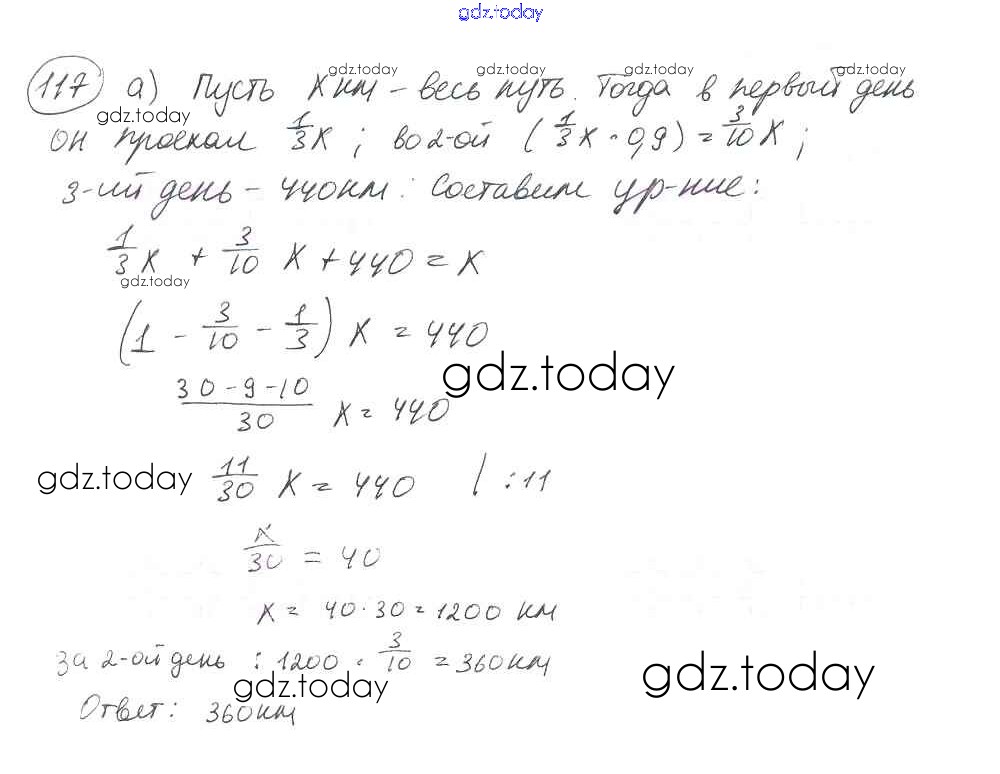 gdz.today
117 а) Пусть X км – весь путь. Тогда в первый день
gdz.today gdz.today gdz.today gdz.today
gdz.today
он проехал 1/3 x ; во 2-ой (1/3 x · 0,9) = 3/10 x ;
3-ий день – 440 км. Составим ур-ние:
1/3 x + 3/10 x + 440 = x
gdz.today
(1 - 3/10 - 1/3) x = 440
gdz.today
(30 - 9 - 10)/30 x = 440
gdz.today
11/30 x = 440 | : 11
x/30 = 40
x = 40 · 30 = 1200 км
за 2-ой день : 1200 · 3/10 = 360 км
gdz.today gdz.today
Ответ: 360 км